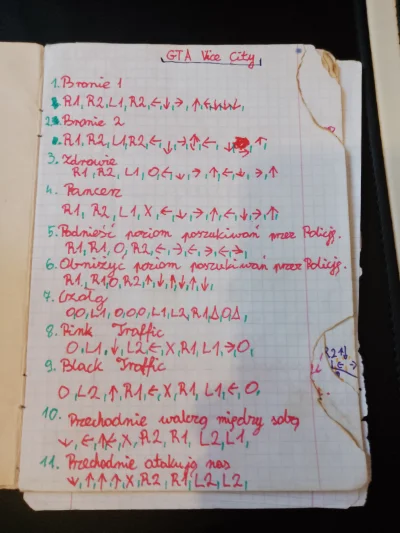 GTA Vice City
1. Bronie 1
R1, R2, L1, R2, ←, ↓, →, ↑, ←, ↓, ↓, ↓,
2. Bronie 2
R1, R2, L1, R2, ←, ↓, →, ↑, ←, ↓, ↑,
3. Zdrowie
R1, R2, L1, O, ←, ↓, →, ↑, ←, ↓, →, ↑
4. Pancerz
R1, R2, L1, X, ←, ↓, →, ↑, ←, ↓, →, ↑,
5. Podnieść poziom poszukiwań przez Policję.
R1, R1, O, R2, ←, →, ←, →, ←, →,
6. Obniżyć poziom poszukiwań przez Policję.
R1, R1, O, R2, ↑, ↓, ↑, ↓, ↑, ↓,
7. Czołg
O, O, L1, O, O, O, L1, L2, R1, Δ, O, Δ,
8. Pink Traffic
O, L1, ↓, L2, ←, X, R1, L1, →, O,
9. Black Traffic
O, L2, ↑, R1, ←, X, R1, L1, ←, O,
10. Przechodnie walczą między sobą
↓, ←, ↑, ←, X, R2, R1, L2, L1,
11. Przechodnie atakują nas
↓, ↑, ↑, ↑, X, R2, R1, L2, L2,